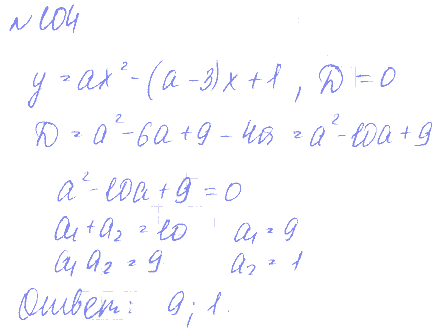 №104
y = ax² - (a - 3)x + 1, D = 0
D = a² - 6a + 9 - 4a = a² - 10a + 9
a² - 10a + 9 = 0
a₁ + a₂ = 10 a₁ = 9
a₁ a₂ = 9 a₂ = 1
Ответ: 9; 1.